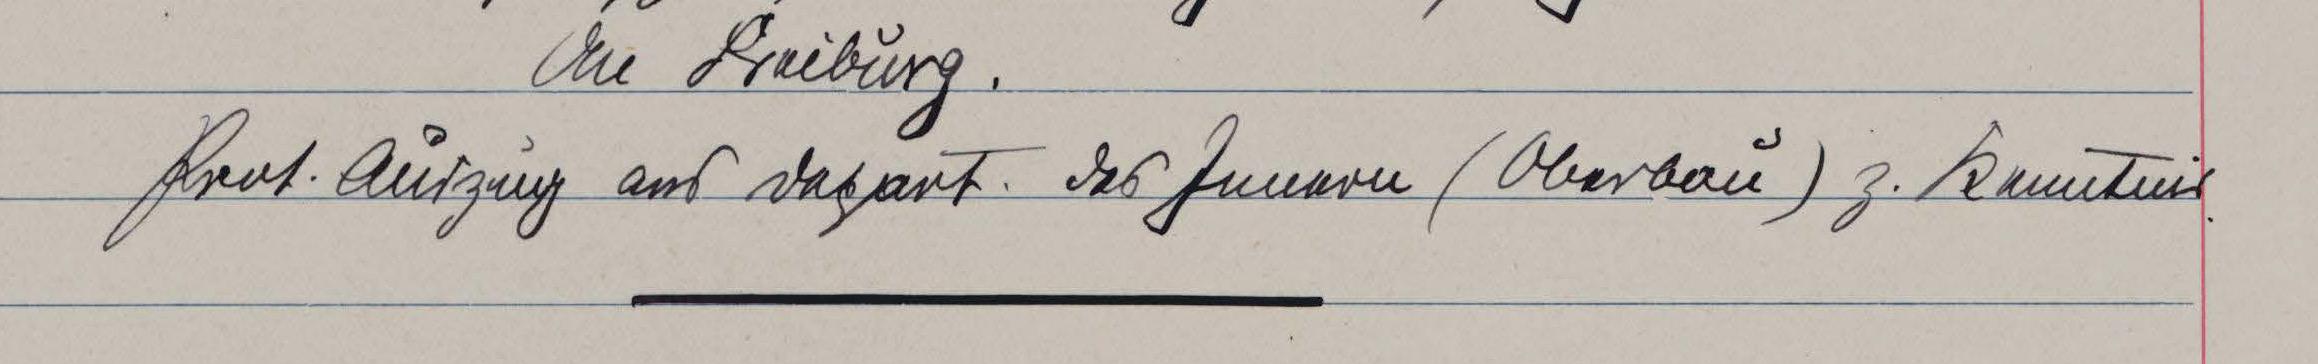 An Freiburg.
Prot. Auszug ans Depart. des Innern (Oberbau) z. Kenntnis.